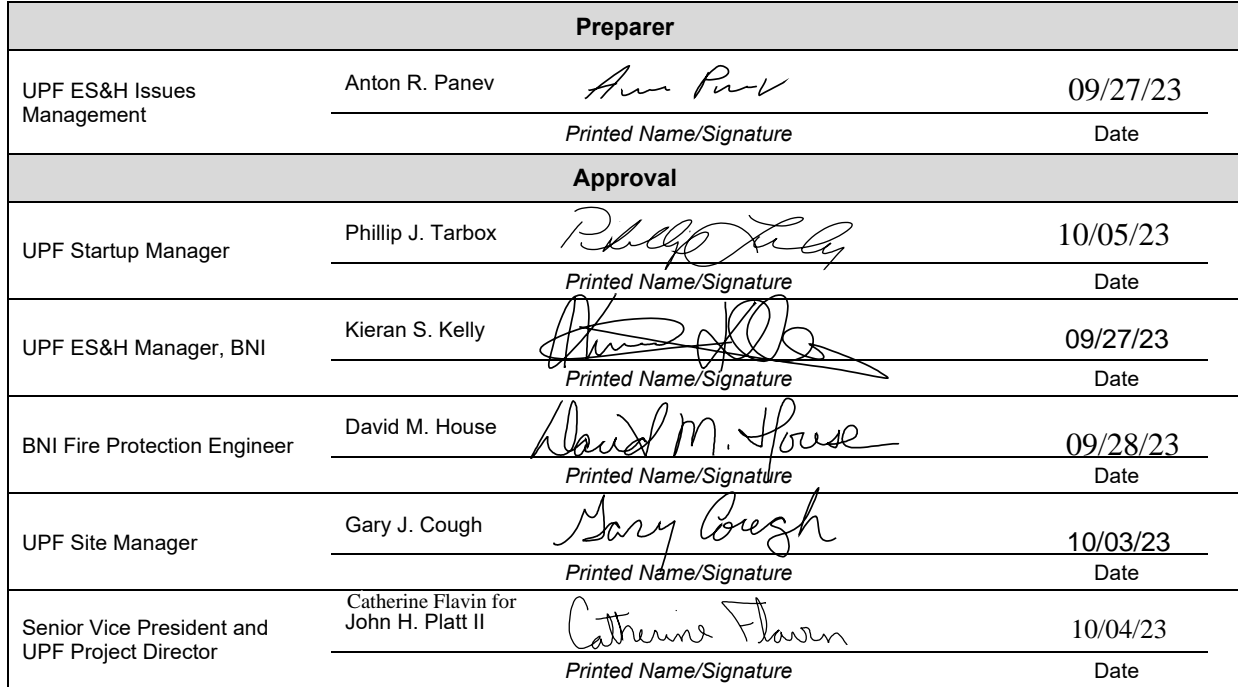 Preparer
UPF ES&H Issues
Management
Anton R. Panev
09/27/23
Printed Name/Signature
Date
Approval
UPF Startup Manager
Phillip J. Tarbox
10/05/23
Printed Name/Signature
Date
UPF ES&H Manager, BNI
Kieran S. Kelly
09/27/23
Printed Name/Signature
Date
BNI Fire Protection Engineer
David M. House
David M. House
09/28/23
Printed Name/Signature
Date
UPF Site Manager
Gary J. Cough
Gary Cough
10/03/23
Printed Name/Signature
Date
Senior Vice President and
UPF Project Director
Catherine Flavin for
John H. Platt II
Catherine Flavin
10/04/23
Printed Name/Signature
Date